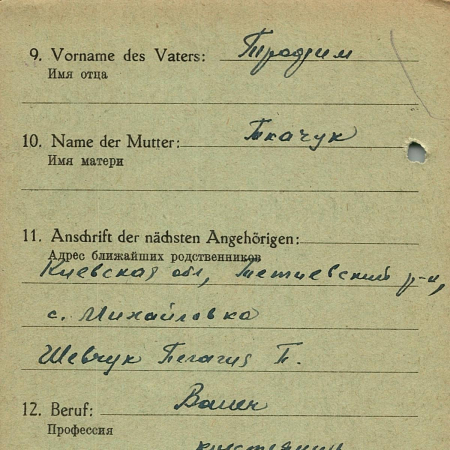 9. Vorname des Vaters: Трофим
Имя отца
10. Name der Mutter: Ткачук
Имя матери
11. Anschrift der nächsten Angehörigen:
Адрес ближайших родственников
Киевская обл, Тетиевский р-н,
с. Михайловка
Шевчук Пелагея П.
12. Beruf:
Профессия